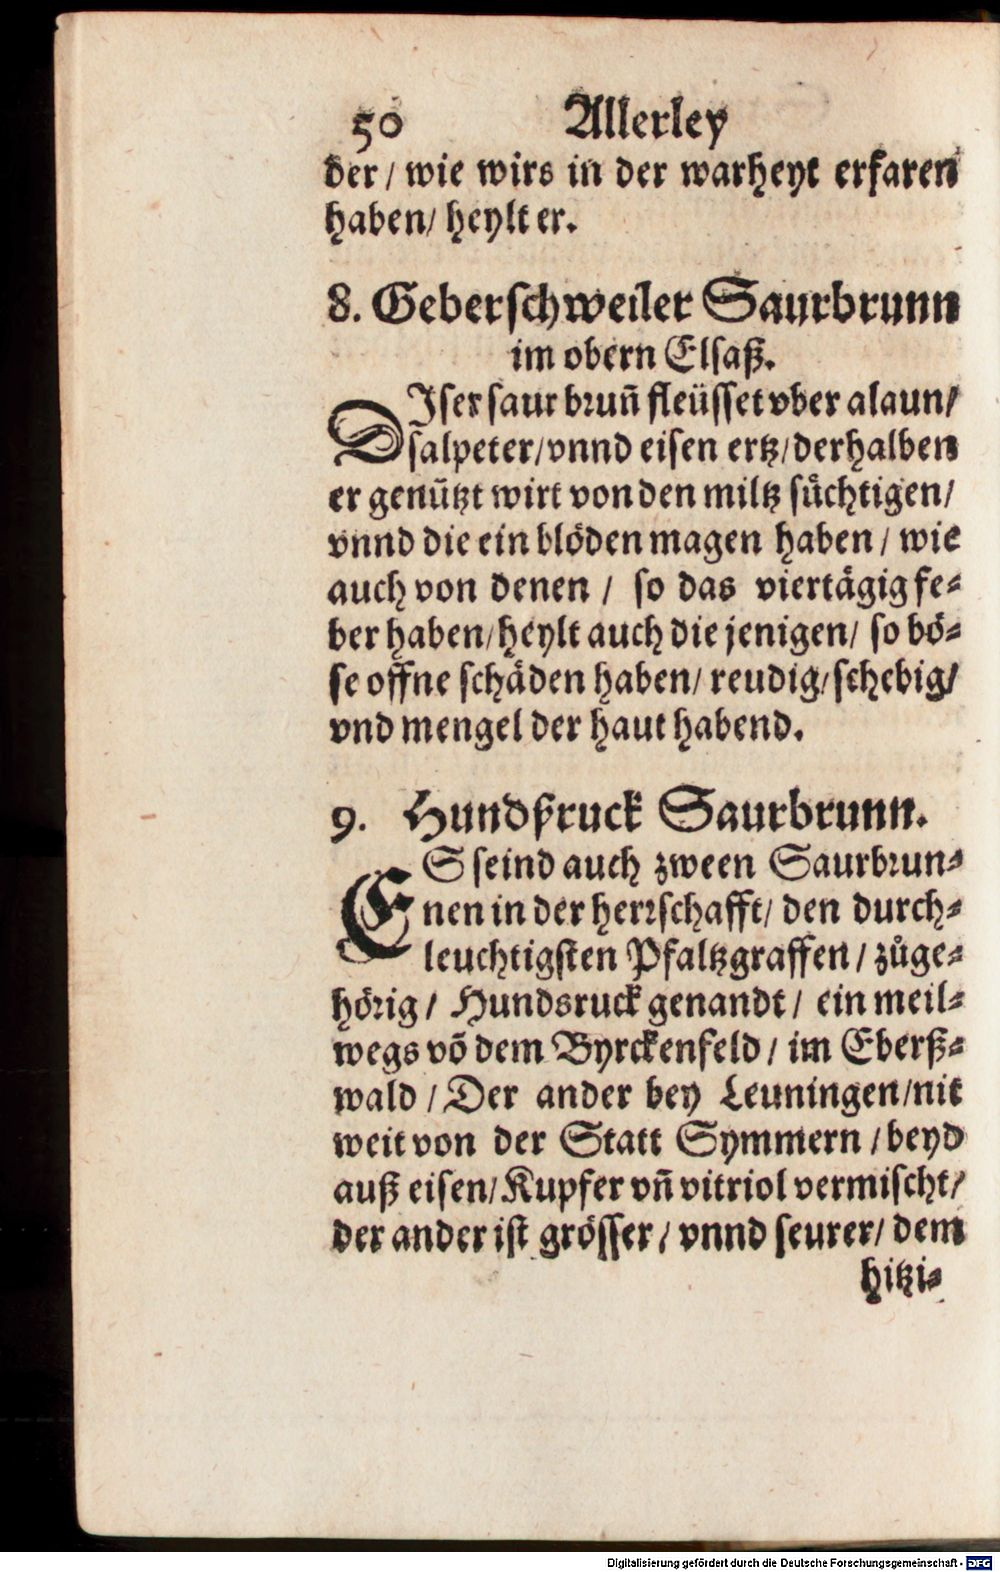 50 Allerley
der / wie wirs in der warheyt erfaren
haben/ heylt er.
8. Geberschweiler Saurbrunn
im obern Elsaß.
DIser saur brun̄ fleüsset vber alaun/
salpeter/vnnd eisen ertz/derhalben
er genützt wirt von den miltz süchtigen/
vnnd die ein blöden magen haben / wie
auch von denen / so das viertägig fe⸗
ber haben/heylt auch die jenigen/ so bö⸗
se offne schäden haben/ reudig/schebig/
vnd mengel der haut habend.
9. Hundßruck Saurbrunn.
ES seind auch zween Saurbrun⸗
nen in der herrschafft/ den durch⸗
leuchtigsten Pfaltzgraffen / zůge⸗
hörig / Hundsruck genandt / ein meil⸗
wegs võ dem Byrckenfeld / im Eberß⸗
wald / Der ander bey Leuningen/nit
weit von der Statt Symmern /beyd
auß eisen/Kupfer vn̄ vitriol vermischt/
der ander ist grösser / vnnd seurer/ dem
hitzi⸗
Digitalisierung gefördert durch die Deutsche Forschungsgemeinschaft - DFG